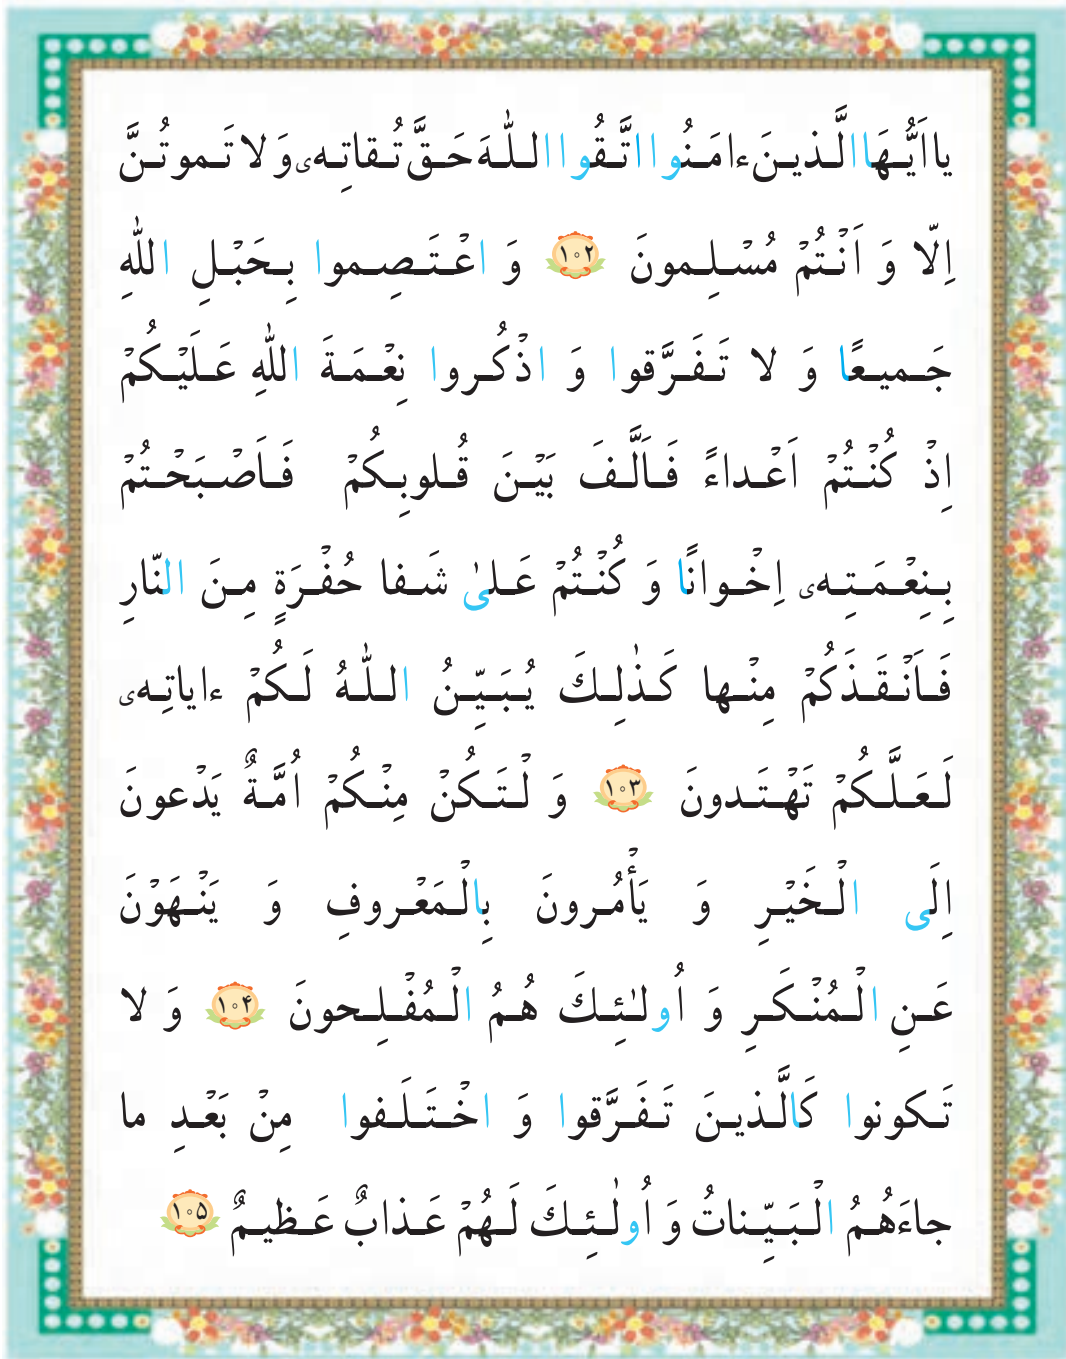 يااَيُّهَا الَّذينَ ءامَنُوا اتَّقُوا اللّٰهَ حَقَّ تُقاتِهی وَ لا تَموتُنَّ
اِلّا وَ اَنْتُمْ مُسْلِمونَ ۱۰۲ وَ اعْتَصِموا بِحَبْلِ اللّٰهِ
جَميعًا وَ لا تَفَرَّقوا وَ اذْكُروا نِعْمَةَ اللّٰهِ عَلَيْكُمْ
اِذْ كُنْتُمْ اَعْداءً فَاَلَّفَ بَيْنَ قُلوبِكُمْ فَاَصْبَحْتُمْ
بِنِعْمَتِهی اِخْوانًا وَ كُنْتُمْ عَلىٰ شَفا حُفْرَةٍ مِنَ النّارِ
فَاَنْقَذَكُمْ مِنْها كَذٰلِكَ يُبَيِّنُ اللّٰهُ لَكُمْ ءاياتِهی
لَعَلَّكُمْ تَهْتَدونَ ۱۰۳ وَ لْتَكُنْ مِنْكُمْ اُمَّةٌ يَدْعونَ
اِلَى الْخَيْرِ وَ يَأْمُرونَ بِالْمَعْروفِ وَ يَنْهَوْنَ
عَنِ الْمُنْكَرِ وَ اُولٰئِكَ هُمُ الْمُفْلِحونَ ۱۰۴ وَ لا
تَكونوا كَالَّذينَ تَفَرَّقوا وَ اخْتَلَفوا مِنْ بَعْدِ ما
جاءَهُمُ الْبَيِّناتُ وَ اُولٰئِكَ لَهُمْ عَذابٌ عَظيمٌ ۱۰۵